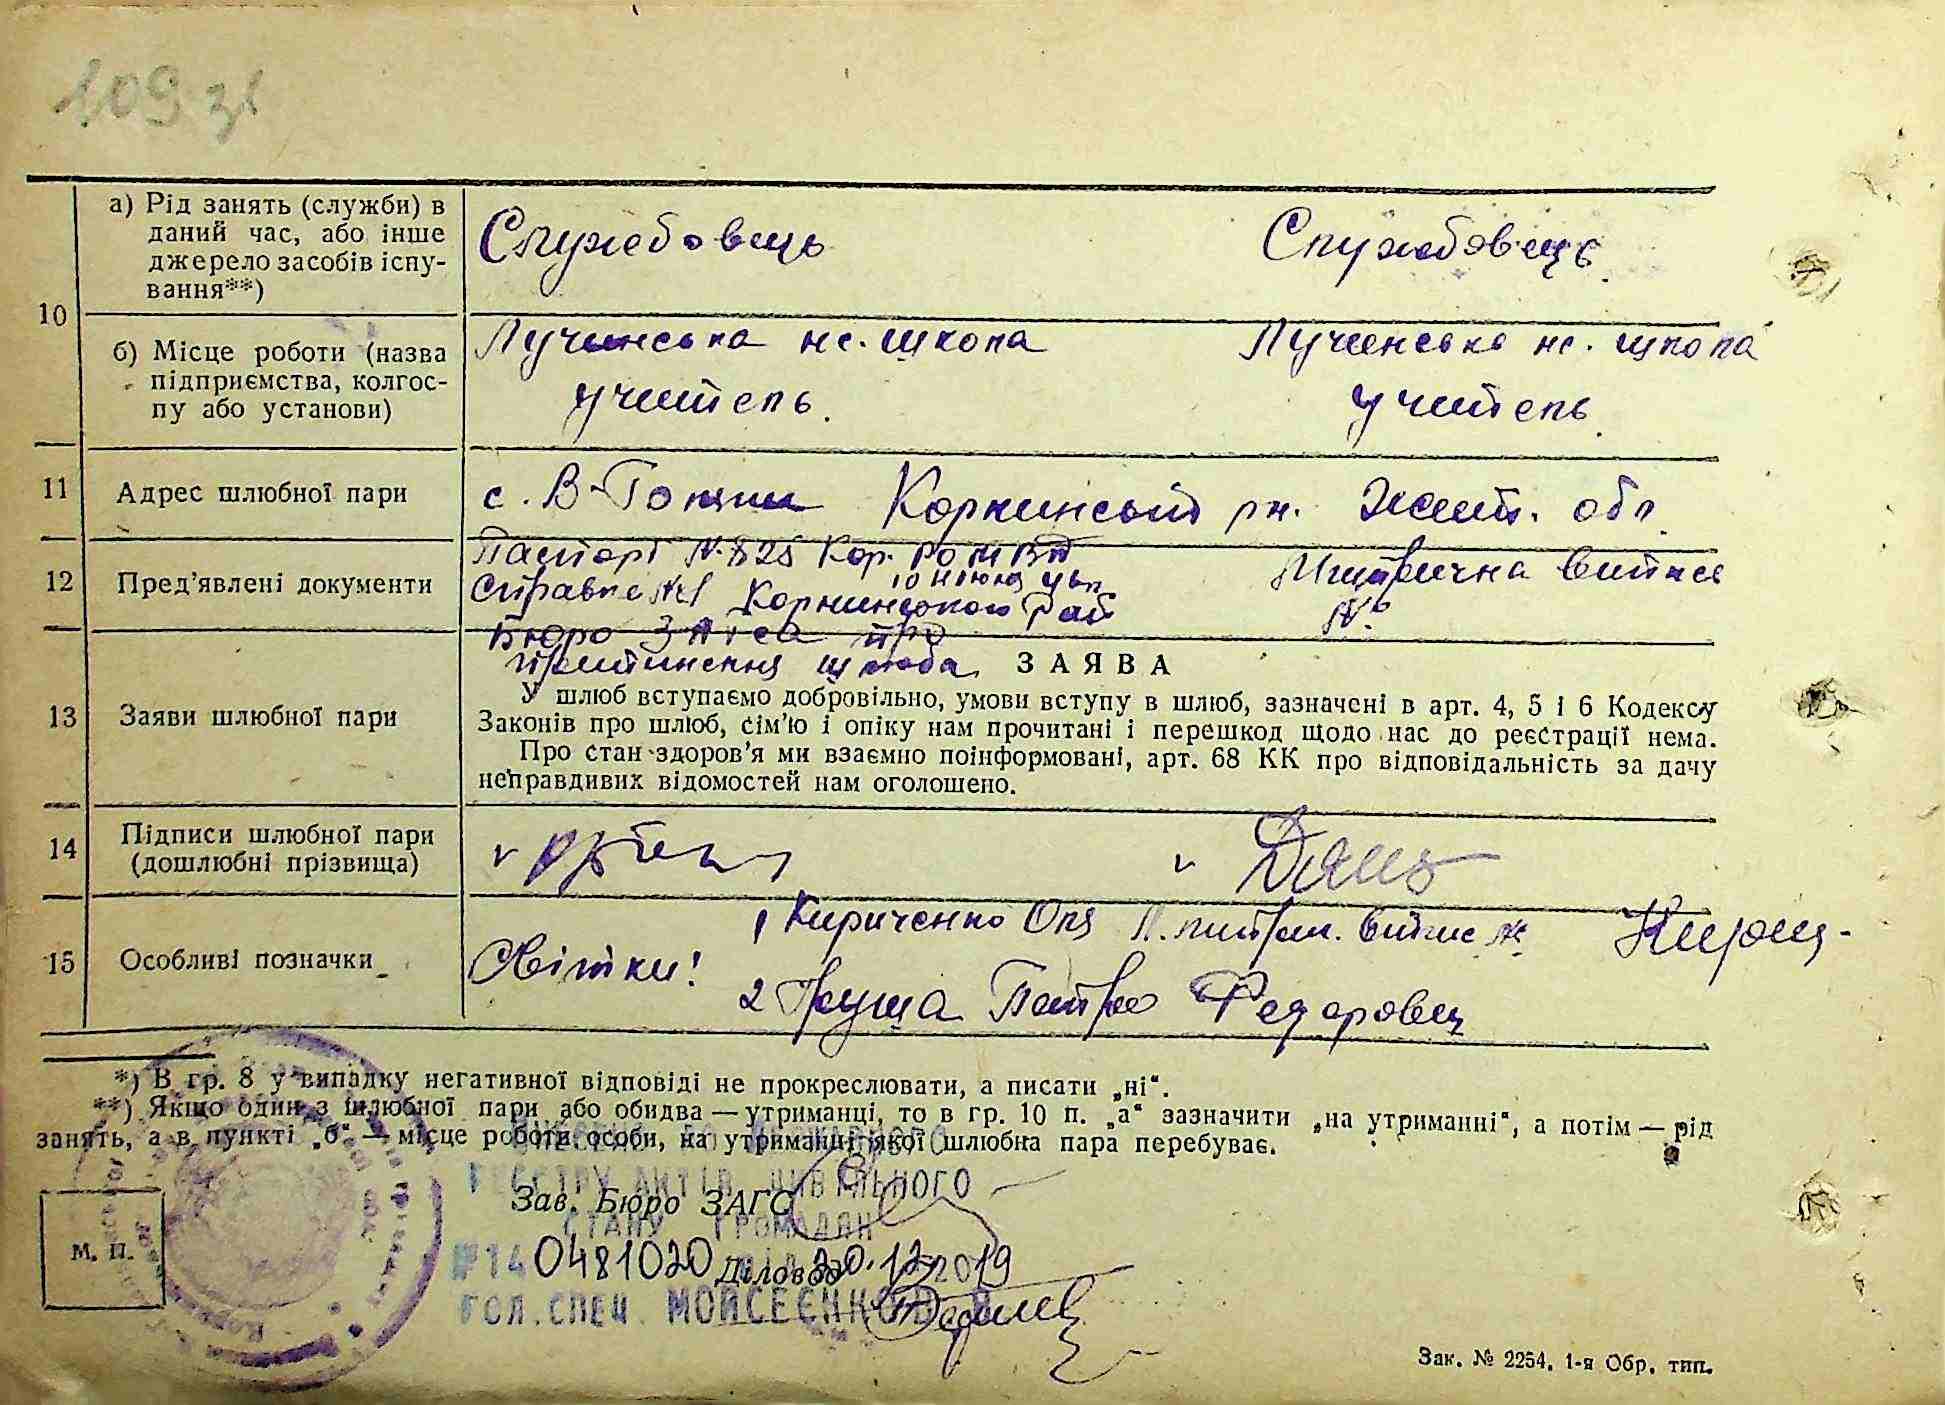 109 зі
10
а) Рід занять (служби) в
даний час, або інше
джерело засобів існу-
вання**)
Службовець
Службовець
б) Місце роботи (назва
підприємства, колгос-
пу або установи)
Лучинська нс. школа
учитель.
Лучинська нс. школа
учитель.
11
Адрес шлюбної пари
с. В-Голяки Корнинський рн. Жит. обл.
12
Пред’явлені документи
Паспорт № 825 Кор. РО МВД
Справка №1 Корнинського Рай
Бюро ЗАГСа про
припинення шлюба
Метрична випись
№
13
Заяви шлюбної пари
ЗАЯВА
У шлюб вступаємо добровільно, умови вступу в шлюб, зазначені в арт. 4, 5 і 6 Кодексу
Законів про шлюб, сім’ю і опіку нам прочитані і перешкод щодо нас до реєстрації нема.
Про стан здоров’я ми взаємно поінформовані, арт. 68 КК про відповідальність за дачу
неправдивих відомостей нам оголошено.
14
Підписи шлюбної пари
(дошлюбні прізвища)
15
Особливі позначки
Свiтки!
1 Кириченко Оля
2 Груша Петро Федорович
*) В гр. 8 у випадку негативної відповіді не прокреслювати, а писати „ні“.
**) Якщо один з шлюбної пари або обидва — утриманці, то в гр. 10 п. „а“ зазначити „на утриманні“, а потім — рід
занять, а в пункті „б“ — місце роботи особи, на утриманні якої шлюбна пара перебуває.
ВНЕСЕНО ДО ДЕРЖАВНОГО
РЕЄСТРУ АКТІВ ЦИВІЛЬНОГО
Зав. Бюро ЗАГС
СТАНУ ГРОМАДЯН
М. П.
№14 0481020 від 20.12.2019
Діловод
ГОЛ.СПЕЦ. МОЙСЕЄНКО
Зак. № 2254, 1-я Обр. тип.